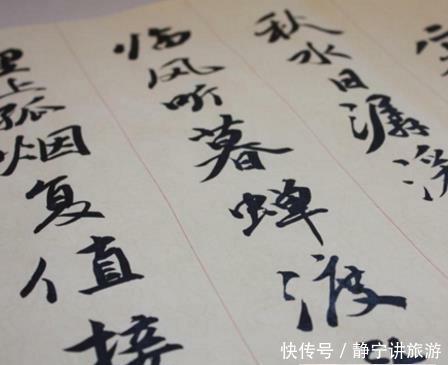 秋水日潺湲
临风听暮蝉渡
里上孤烟复值接
快传号／静宁讲旅游